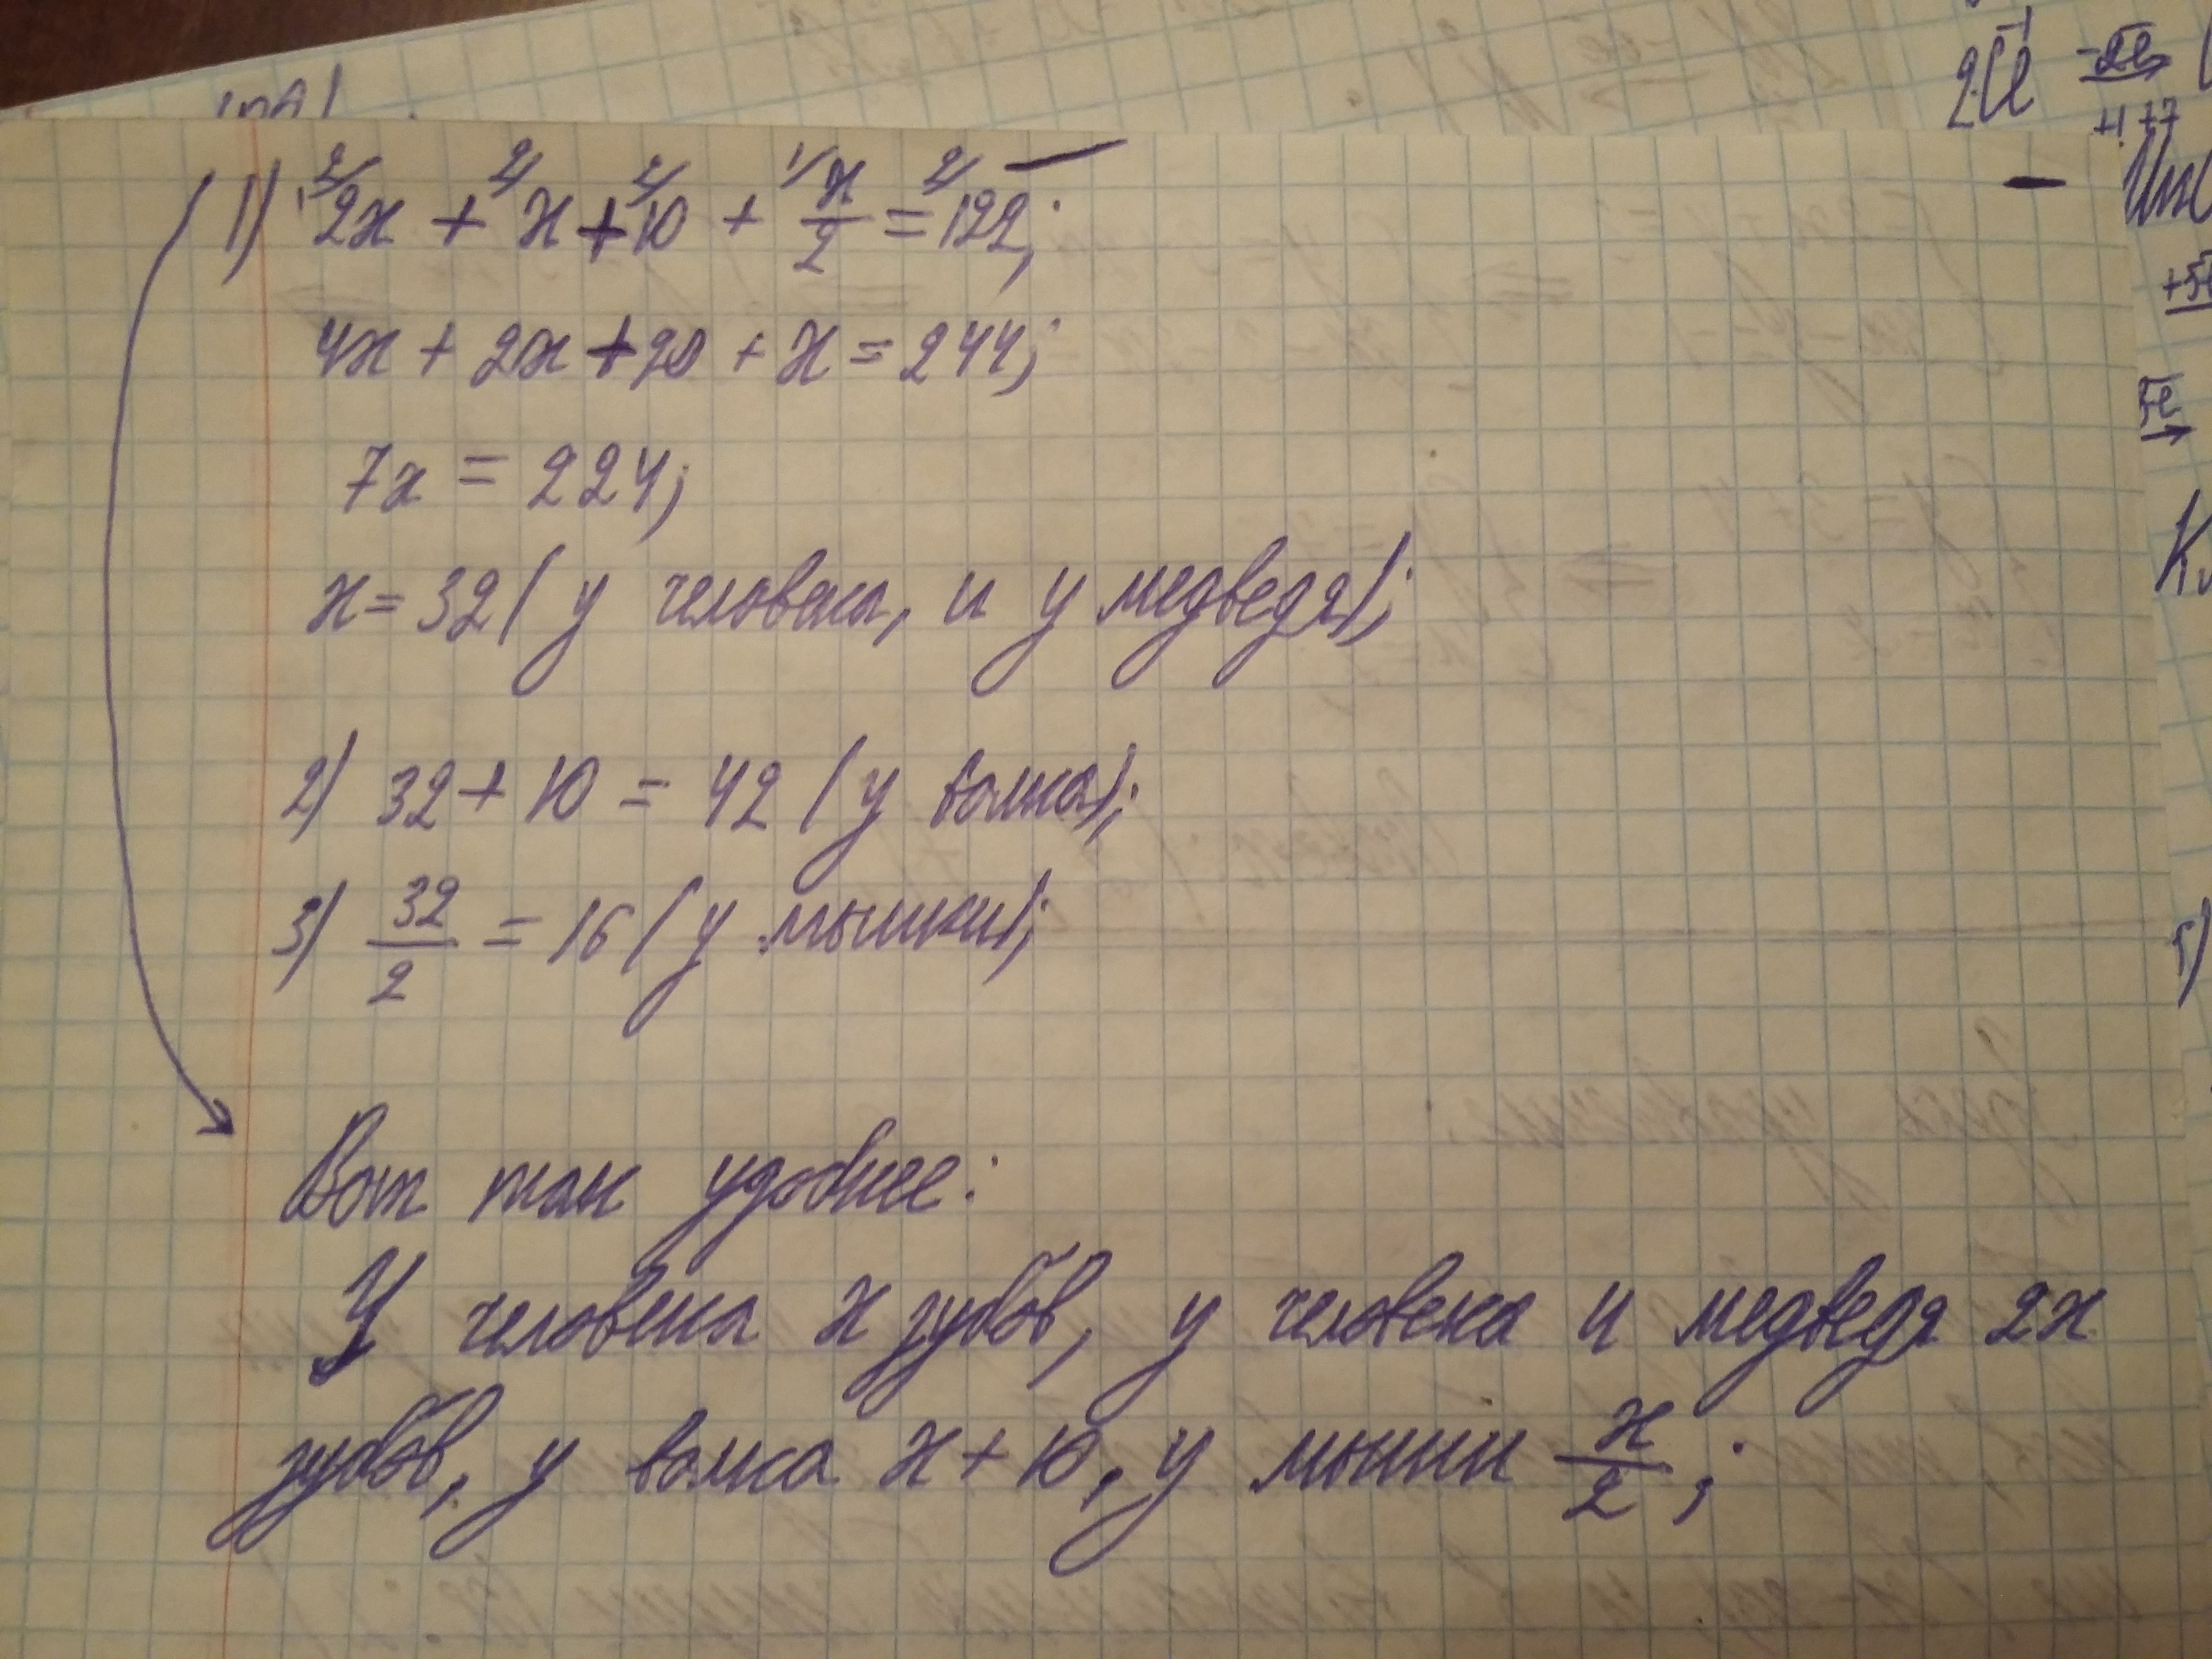 1) 2x + x + 10 + x/2 = 122;
4x + 2x + 20 + x = 244;
7x = 224;
x = 32 ( у человека, и у медведя);
2) 32 + 10 = 42 ( у волка);
3) 32/2 = 16 ( у мышки);
Вот так удобнее:
У человека x зубов, у человека и медведя 2x
зубов, у волка x + 10, у мыши x/2 ;
2Cl⁻¹ -2e
+1 +7
+5e
5e